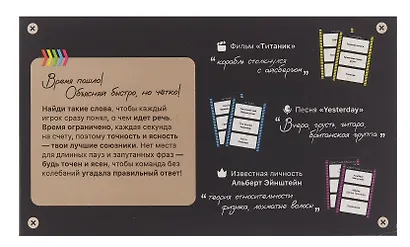 Время пошло!
Объясняй быстро, но чётко!
Найди такие слова, чтобы каждый
игрок сразу понял, о чем идет речь.
Время ограничено, каждая секунда
на счету, поэтому точность и ясность
— твои лучшие союзники. Нет места
для длинных пауз и запутанных фраз —
будь точен и ясен, чтобы команда без
колебаний угадала правильный ответ!
Фильм «Титаник»
“корабль столкнулся
с айсбергом”
Песня «Yesterday»
“Вчера, грусть, гитара,
британская группа”
Известная личность
Альберт Эйнштейн
“теория относительности
физика, лохматые волосы”